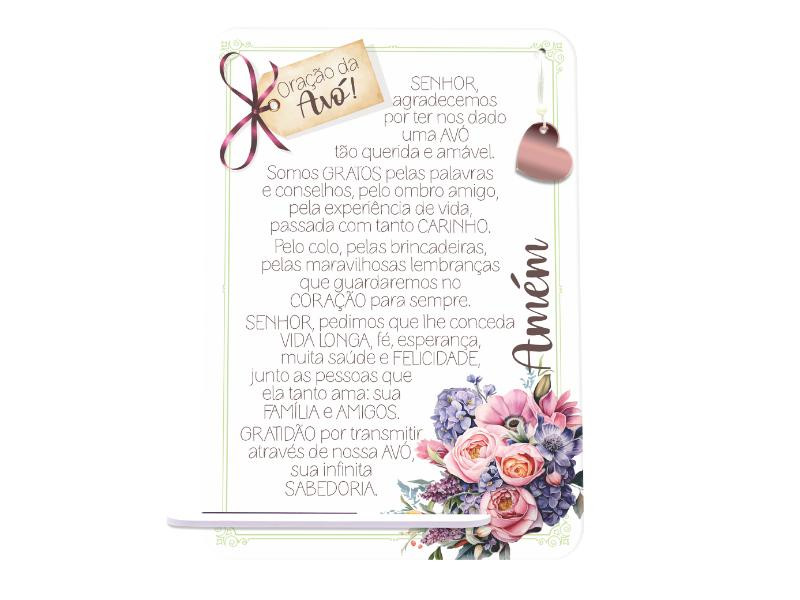 Oração da
Avó!
SENHOR,
agradecemos
por ter nos dado
uma AVÓ
tão querida e amável.
Somos GRATOS pelas palavras
e conselhos, pelo ombro amigo,
pela experiência de vida,
passada com tanto CARINHO.
Pelo colo, pelas brincadeiras,
pelas maravilhosas lembranças
que guardaremos no
CORAÇÃO para sempre.
SENHOR, pedimos que lhe conceda
VIDA LONGA, fé, esperança,
muita saúde e FELICIDADE,
junto as pessoas que
ela tanto ama: sua
FAMÍLIA e AMIGOS.
GRATIDÃO por transmitir
através de nossa AVÓ,
sua infinita
SABEDORIA.
Amém